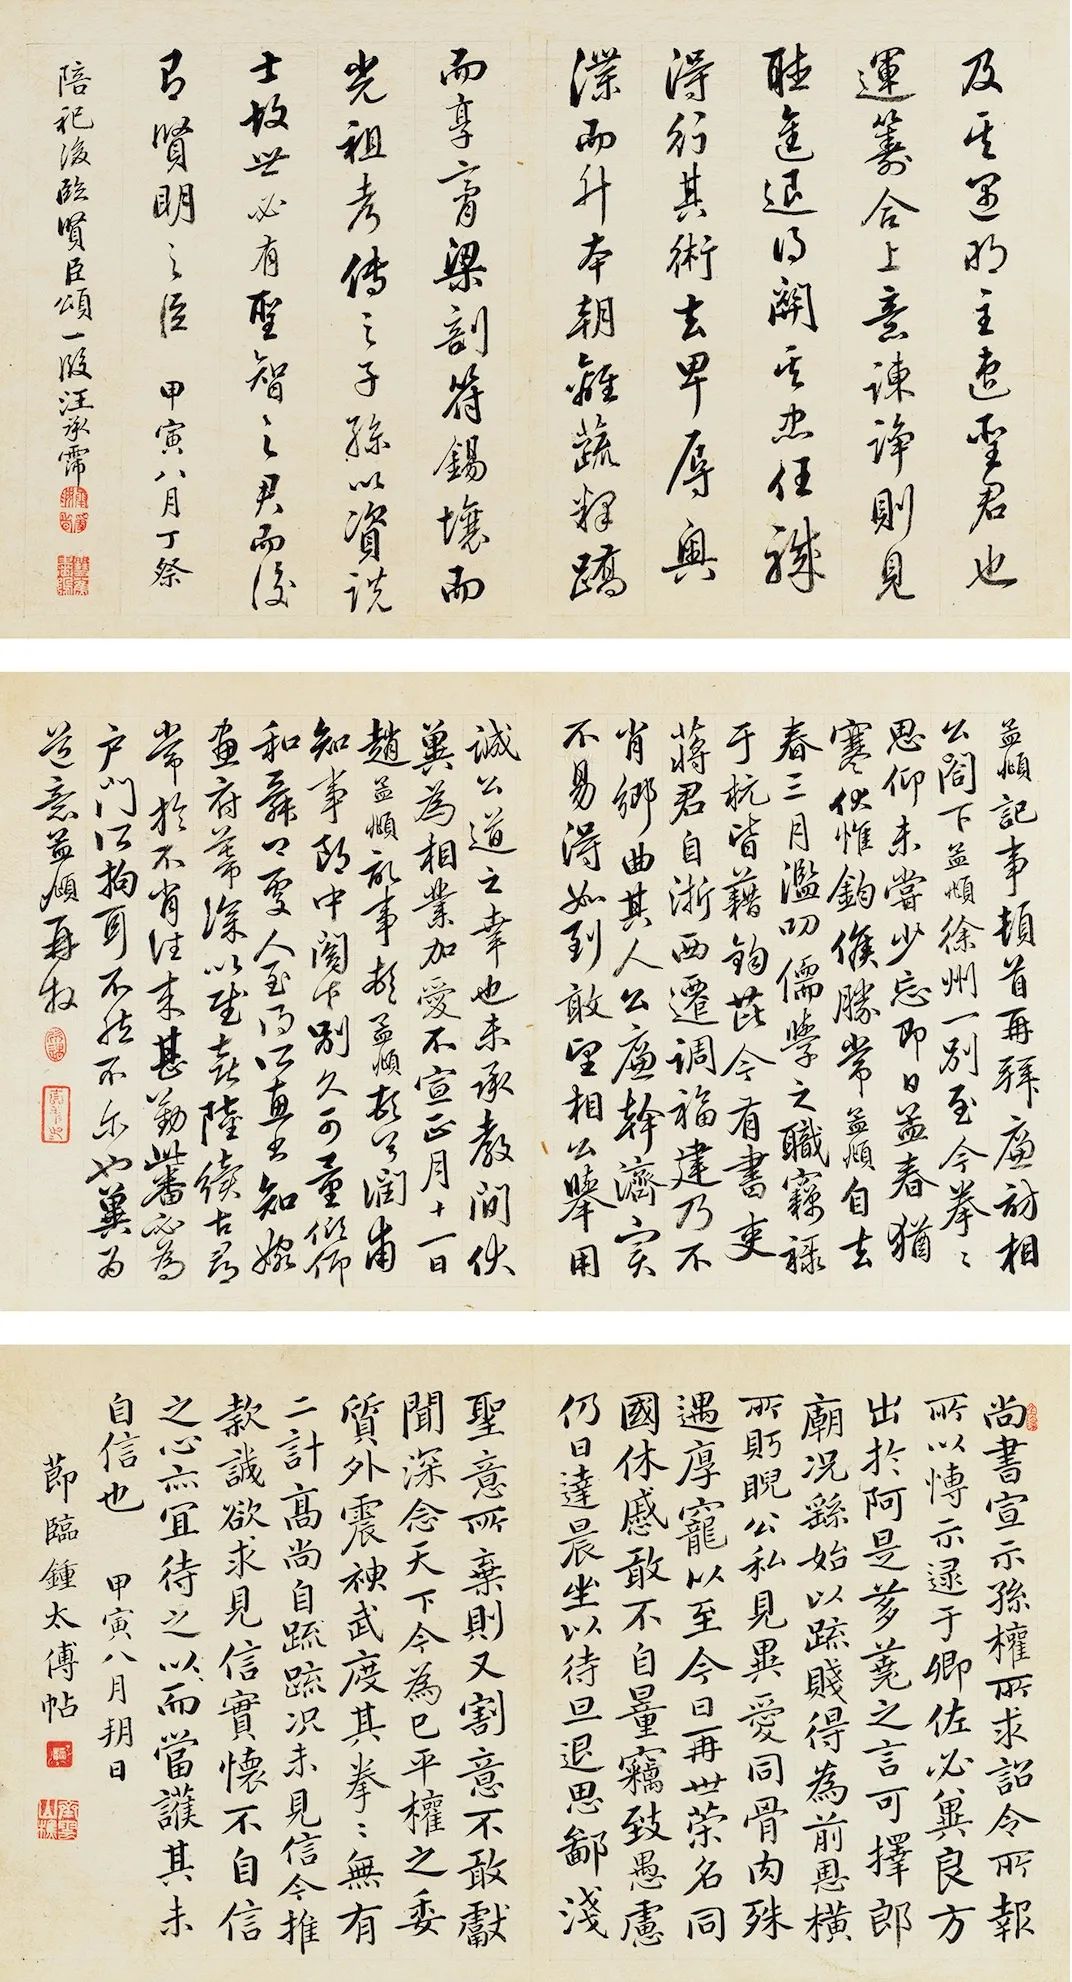 及其遇明主遭聖君也
運籌合上意諫諍則見
聽進退得關其忠任職
得行其術去卑辱奥
渫而升本朝離蔬釋蹻
而享膏粱剖符錫壤而
光祖考傳之子孫以資說
士故世必有聖智之君而後
有賢明之臣 甲寅八月丁祭
陪祀後臨賢臣頌一段汪承霈
孟頫記事頓首再拜廉訪相
公閤下孟頫徐州一別至今拳〻
思仰未嘗少忘即日孟春猶
寒伏惟鈞候勝常孟頫自去
春三月濫叨儒學之職竊祿
于杭皆藉鈞芘今有書吏
蔣君自浙西遷調福建乃不
肖鄉曲其人公廉幹濟實
不易得如到敢望相公舉用
誠公道之幸也未承教間伏
冀為相業加愛不宣正月十一日
趙孟頫記事頓首
知事郎中閣下別久可量傾仰
和
常於不肖往来甚勤此番必為
戶門所拘耳不然不尔也冀為
道意孟頫再拜
尚書宣示孫權所求詔令所報
所以博示逮于卿佐必冀良方
出於阿是芻蕘之言可擇郎
廟況繇始以疏賤得為前恩橫
所眄睨公私見異愛同骨肉殊
遇厚寵以至今日再世榮名同
國休慼敢不自量竊致愚慮
仍日達晨坐以待旦退思鄙淺
聖意所棄則又割意不敢獻
聞深念天下今為已平權之委
質外震神武度其拳〻無有
二計高尚自疏疏況未見信今推
款誠欲求見信實懷不自信
之心亦宜待之以而當護其未
自信也 甲寅八月朔日
節臨鍾太傅帖